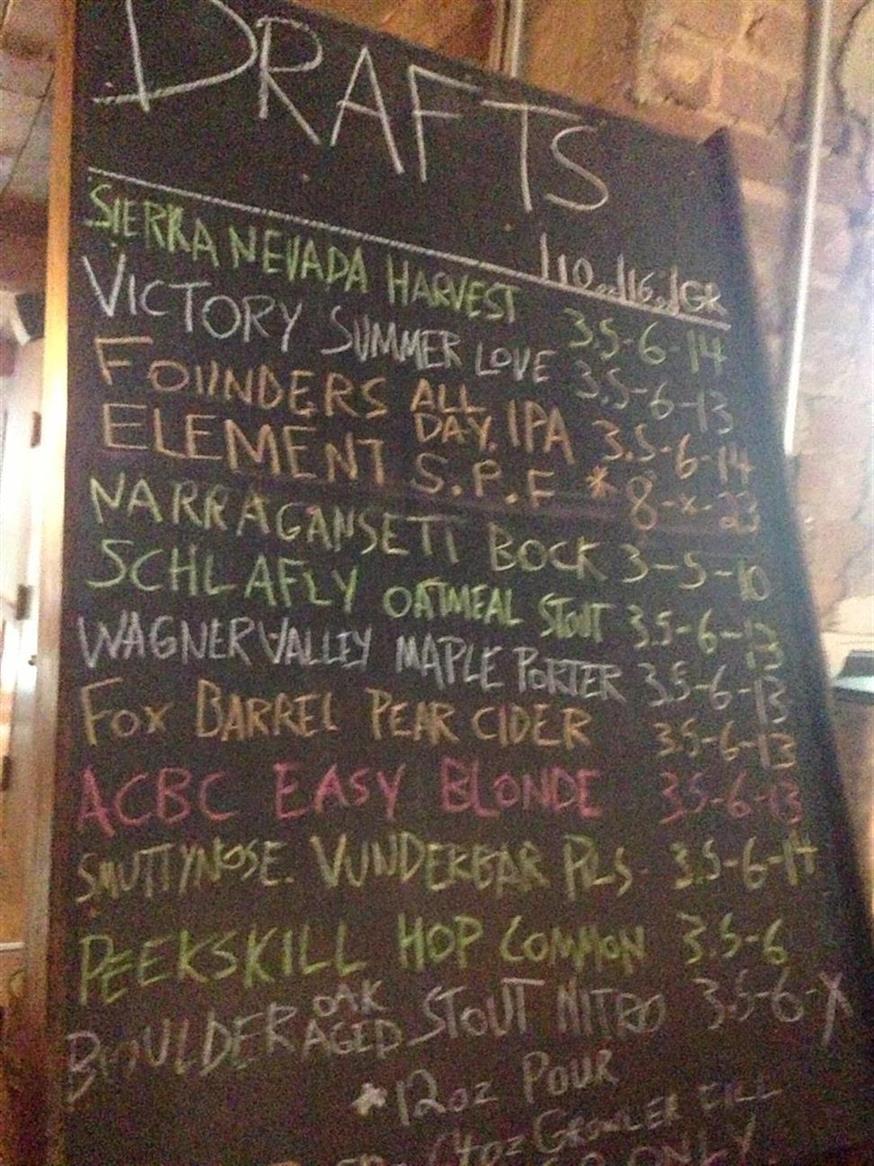 DRAFTS
10oz/16oz/GR
SIERRA NEVADA HARVEST 3.5-6-14
VICTORY SUMMER LOVE 3.5-6-13
FOUNDERS ALL DAY IPA 3.5-6-14
ELEMENT S.P.F * 8-X-23
NARRAGANSETT BOCK 3-5-10
SCHLAFLY OATMEAL STOUT 3.5-6-13
WAGNER VALLEY MAPLE PORTER 3.5-6-13
FOX BARREL PEAR CIDER 3.5-6-13
ACBC EASY BLONDE 3.5-6-13
SMUTTYNOSE VUNDERBAR PILS 3.5-6-14
PEEKSKILL HOP COMMON 3.5-6
BOULDER OAK AGED STOUT NITRO 3.5-6-X
*12oz POUR
64oz GROWLER FILL
ONLY